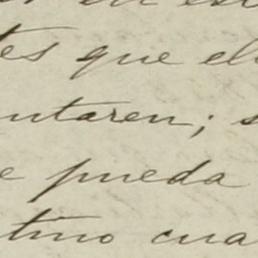 tes que el
ntaren; s
e pueda
tino cua